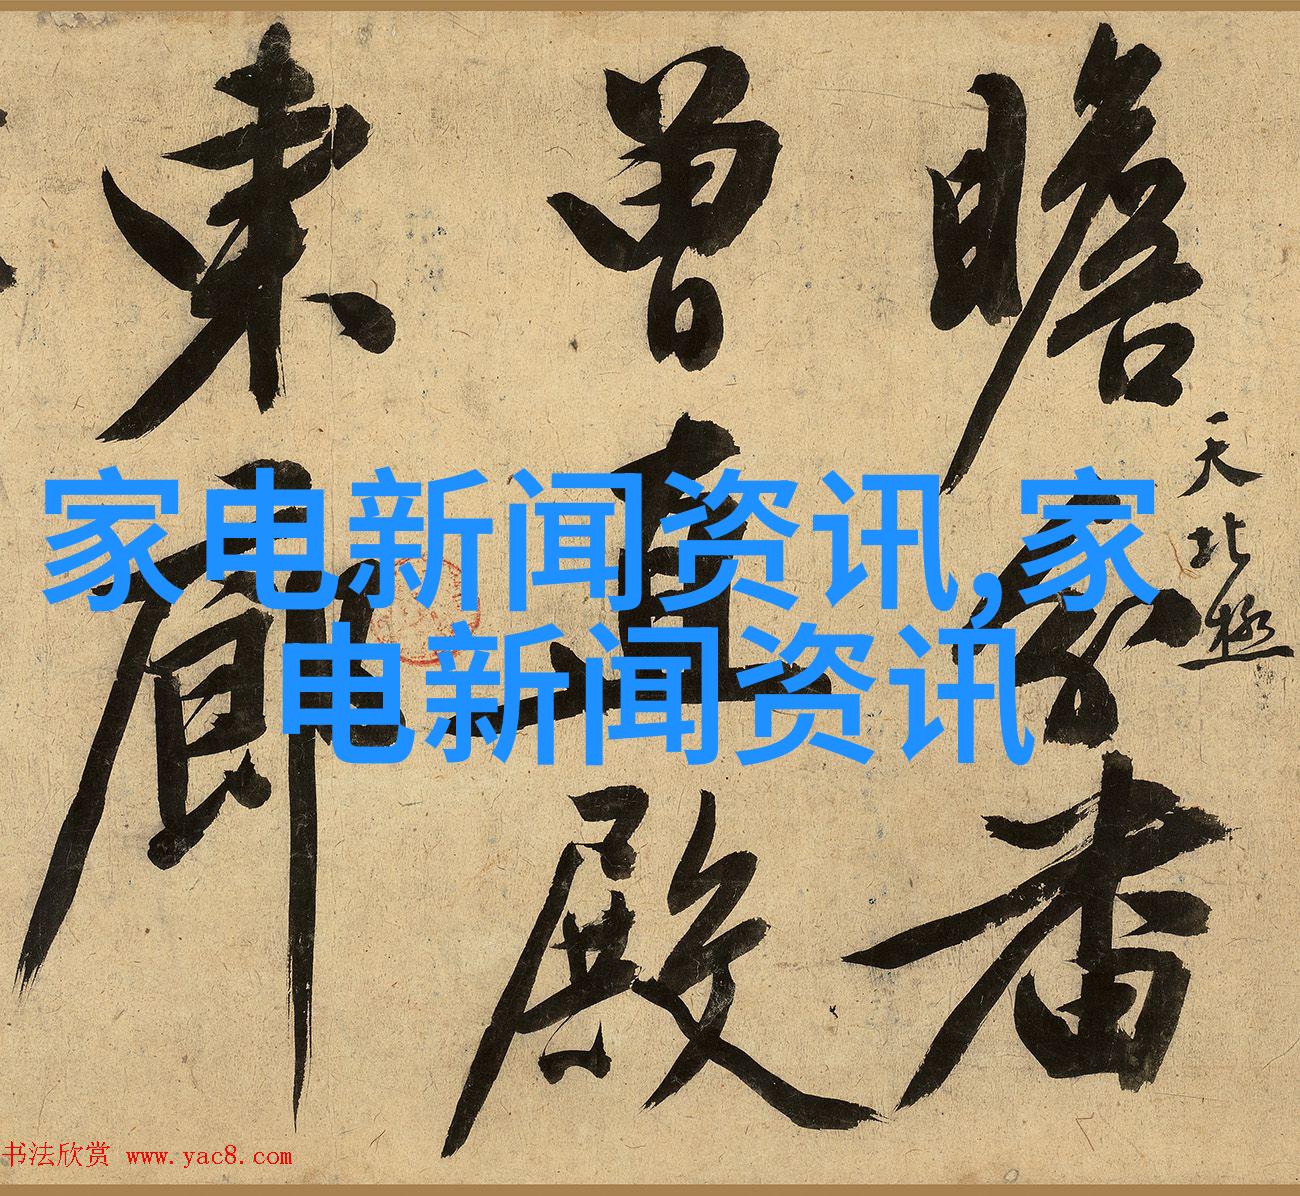 家电新闻资讯,家
电新闻资讯
瞻
天北極
曾直殿
東廊
书法欣赏 www.yac8.com